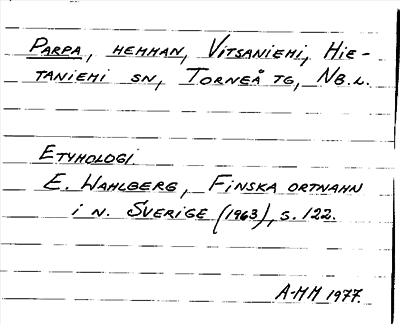 PARPA, HEMMAN, VITSANIEMI, HIE-
TANIEMI SN, TORNEÅ TG, NB.L.
ETYMOLOGI
E. WAHLBERG, FINSKA ORTNAMN
I N. SVERIGE (1963), S. 122.
A-MM 1977.